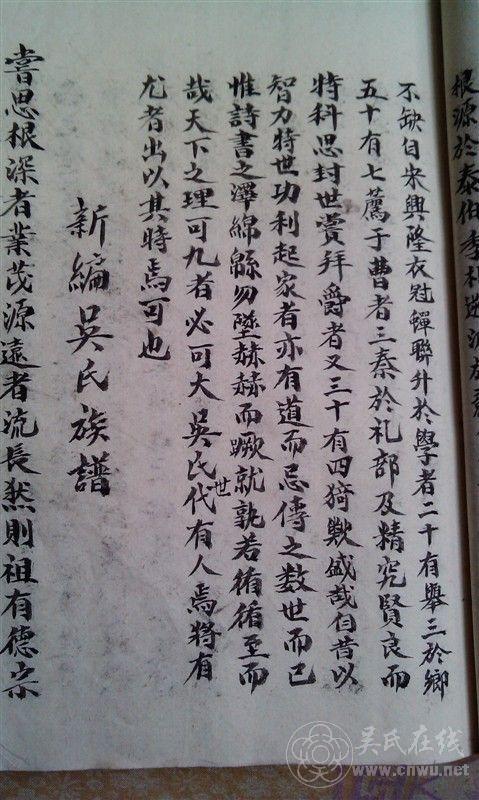 根源於泰伯季札
不缺自宋興隆衣冠蟬聯升於學者二十有舉三於鄉
五十有七薦于曹者三奏於礼部及精究賢良而
特科思封世賞拜爵者又三十有四猗歟盛哉自昔以
智力特世功利起家者亦有道而忌傳之数世而已
惟詩書之澤綿緜勿墜赫赫而蹶就孰若循循至而
哉天下之理可九者必可大吳氏世代有人焉將有
尤者出以其時焉可也
新編吳氏族譜
嘗思根深者業茂源遠者流長然則祖有德宗
吴氏在线
www.cnwu.net